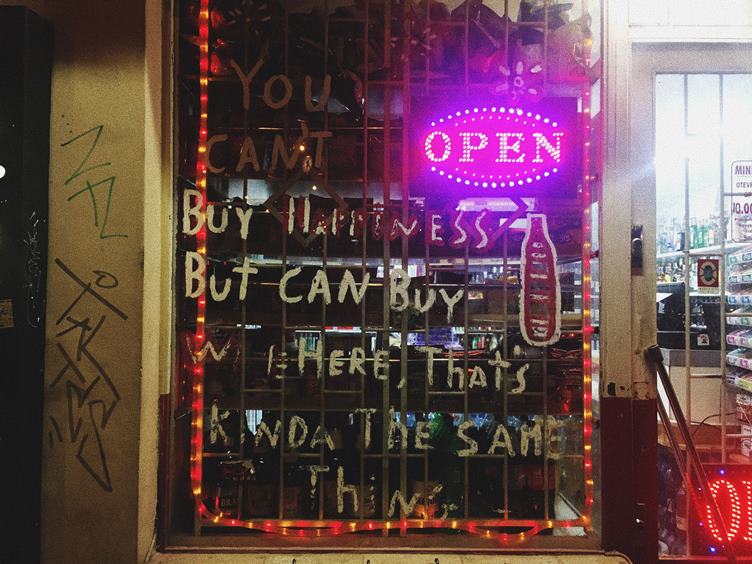 YOU
CAN'T
BUY HAPPINESS
BUT CAN BUY
HERE, THAT'S
KINDA THE SAME
THING
OPEN
MINI
OTEV